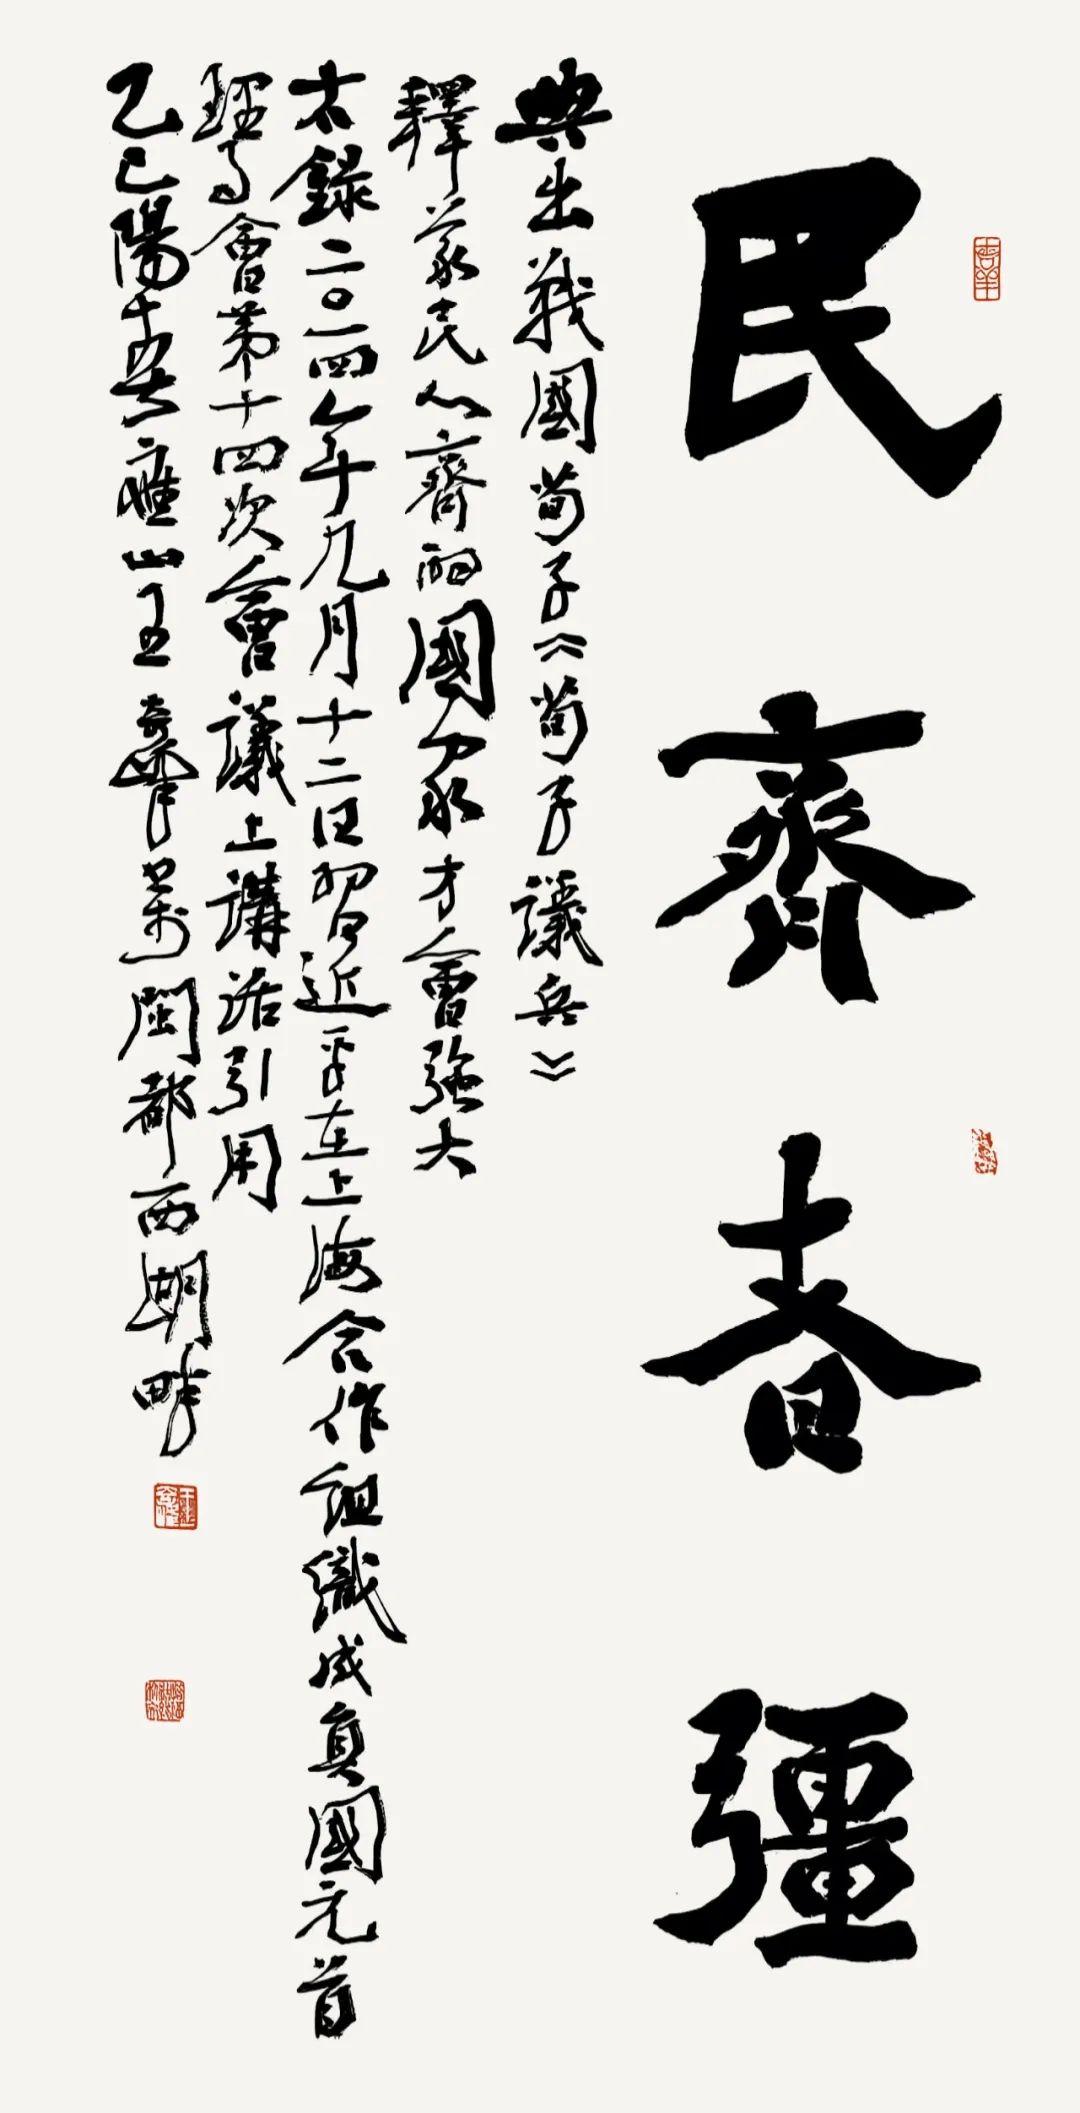 民齊者彊
典出戰國荀子《荀子議兵》
釋義民心齊的國家方會強大
本錄二〇一四年九月十二日習近平在上海合作組織成員國元首
理事會第十四次會議上講話引用
乙巳陽春 山王 於閩都西湖畔